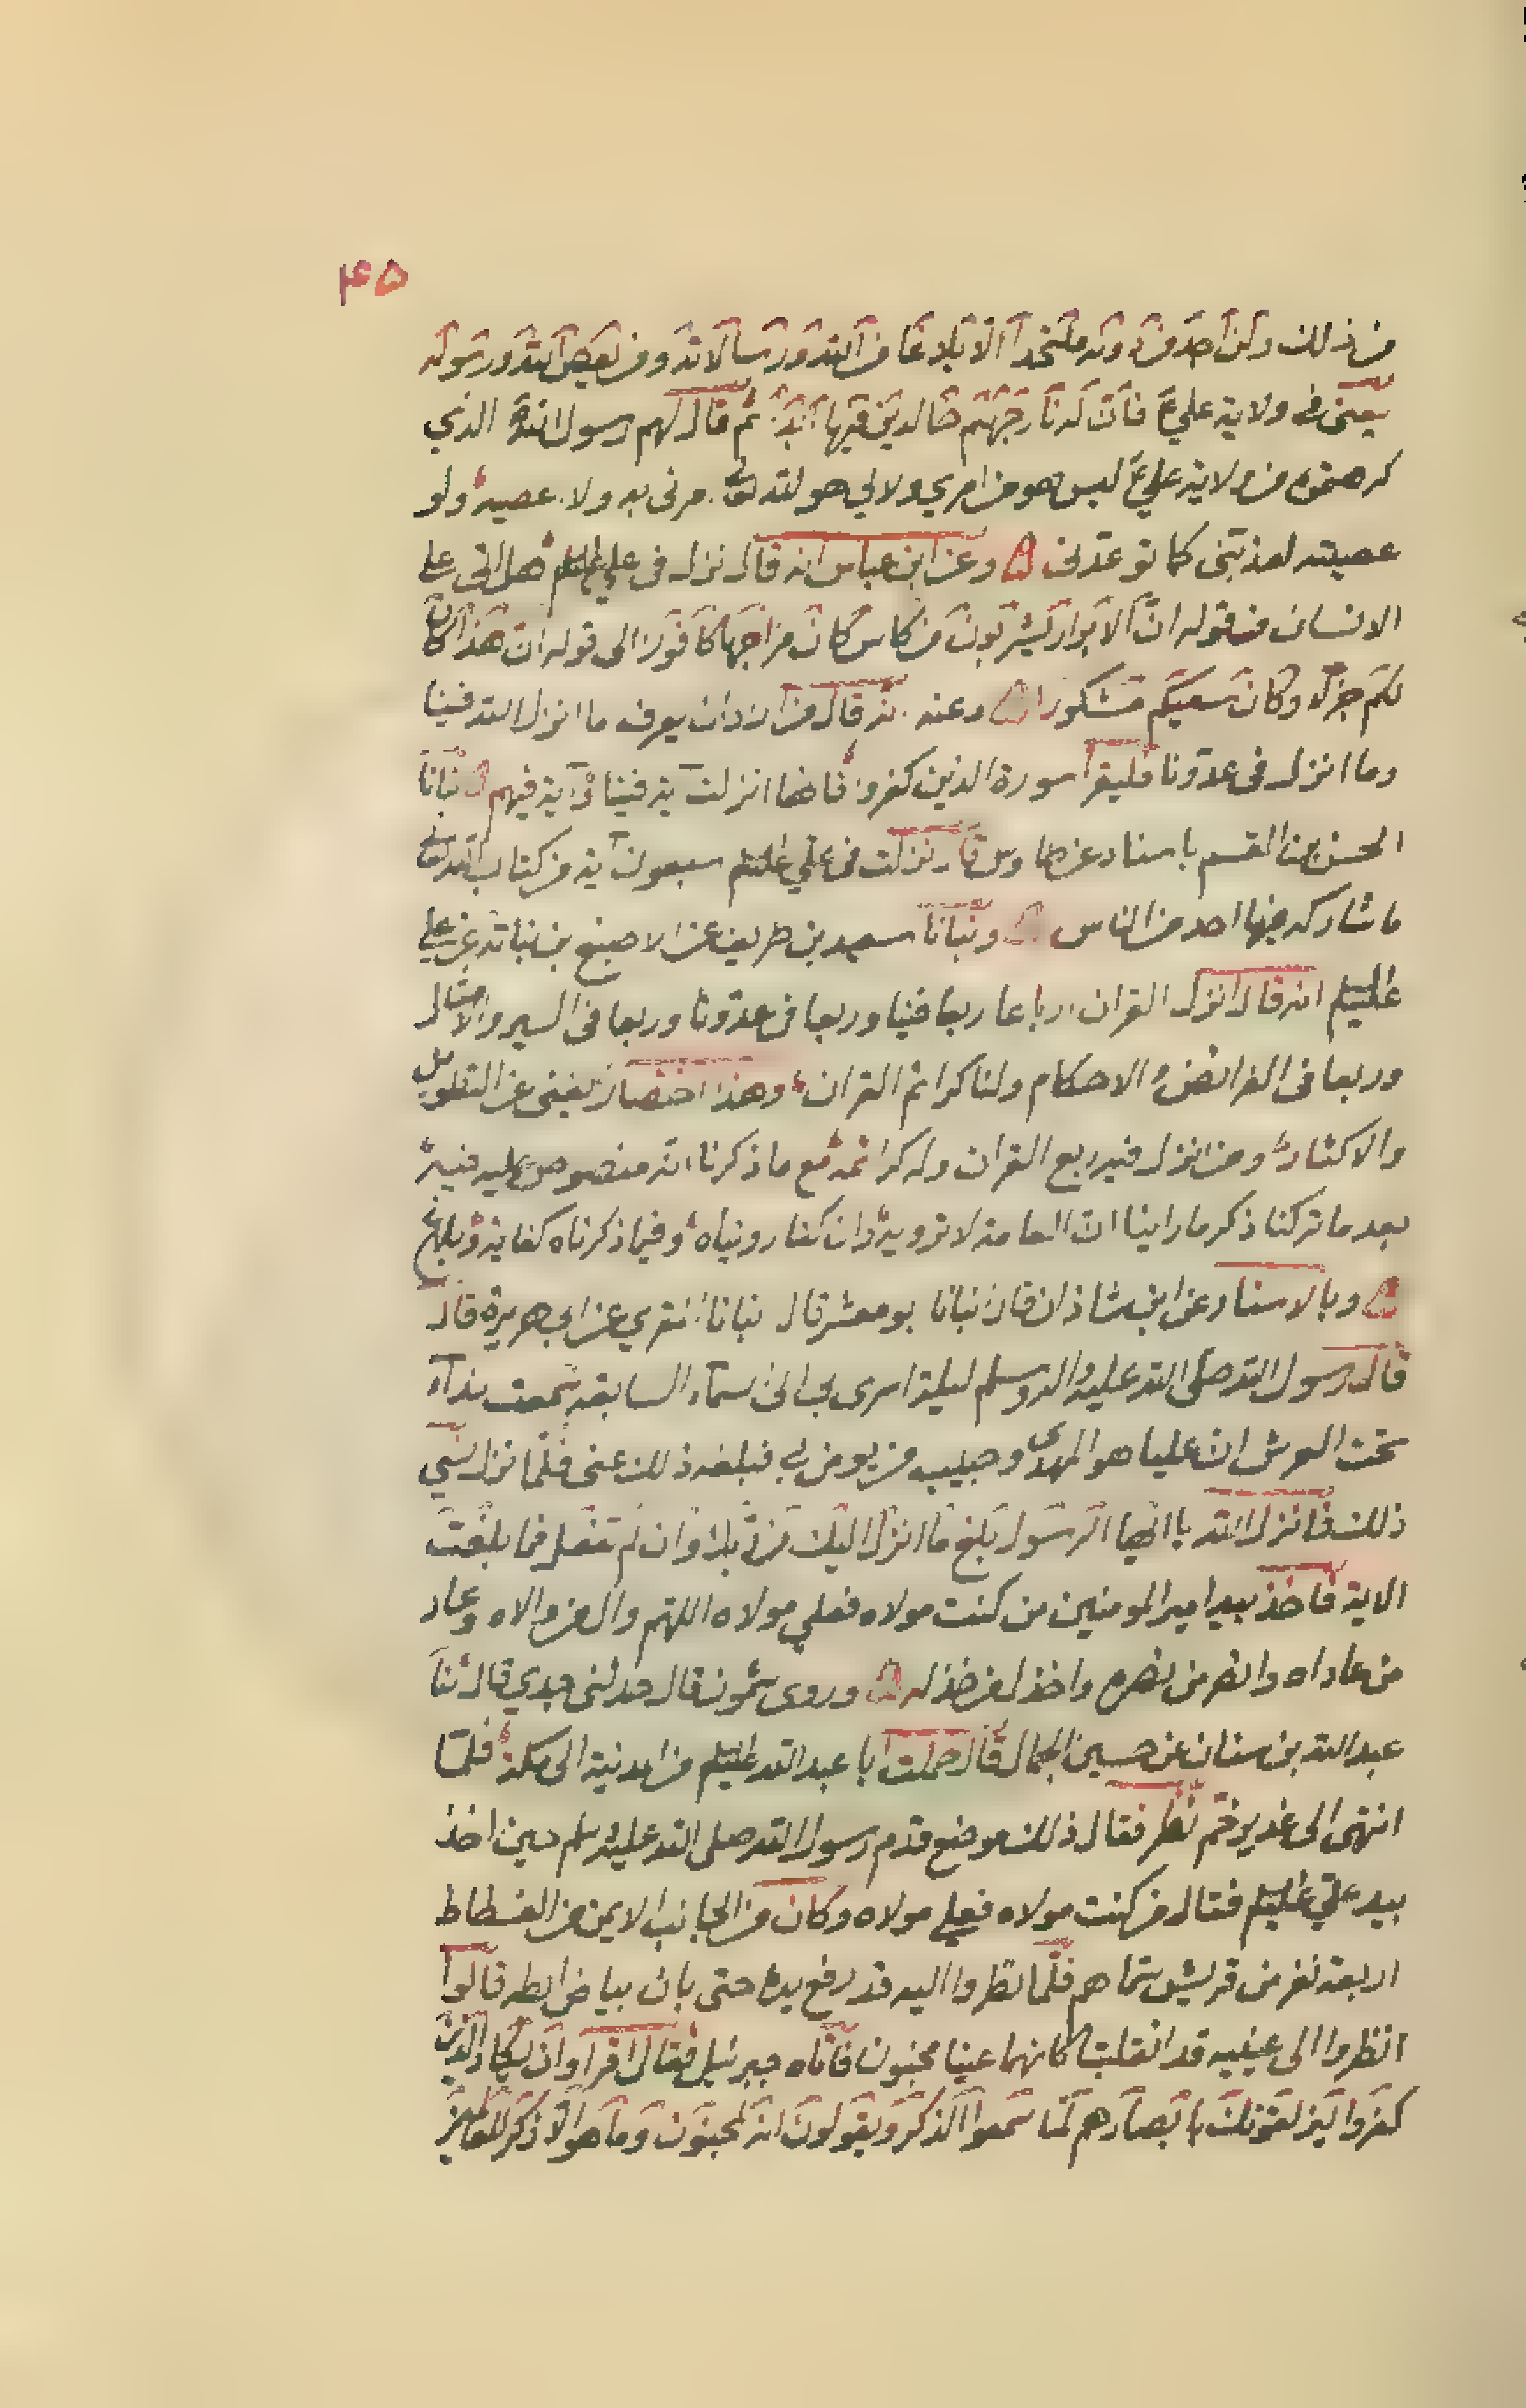 ۴۵
من ذلك ولن اجد من دونه ملتحدا الا بلاغا من الله ورسالاته ومن يعص الله ورسوله
يعنى فى ولاية علي ع فان له نار جهنم خالدين فيها ابدا ثم قال لهم رسول الله الذي
كرهتموه من ولاية علي ع ليس هو من امري ولا لي هو لله امرنى به ولا عصيه ولو
عصيته لعذبنى كما توعدنى وعن ابن عباس انه قال نزل فى علي هل اتى على
الانسان من قوله ان الابرار يشربون من كاس كان مزاجها كافورا الى قوله ان هذا كان
لكم جزاء وكان سعيكم مشكورا وعنه انه قال من اراد ان يعرف ما انزل الله فينا
وما انزل فى عدونا فليقرا سورة الذين كفروا فانها انزلت آية فينا وآية فيهم نبانا
الحسن بن القسم باسناد عن قال نزلت فى علي عليه السلم سبعون آية من كتاب الله
ما شاركه فيها احد من الناس ونبانا سعيد بن طريف عن الاصبغ بن نباته عن على
عليه السلم انه قال انزل القران ارباعا ربعا فينا وربعا فى عدونا وربعا فى السير والامثال
وربعا فى الفرائض والاحكام ولنا كرائم القران وهذا اختصار يغنى عن التطويل
والاكثار ومن انزل فيه ربع القران وله كرائمه مع ما ذكرنا انه منصوص عليه فيه
بعد ما تركنا ذكر ما راينا ان العامة لا ترويه وان كنا رويناه وفيما ذكرناه كفاية وبلاغ
وبالاسناد عن ابن شاذان قال نبانا بو معشر قال نبانا المقري عن ابى هريرة قال
قال رسول الله صلى الله عليه واله وسلم ليلة اسرى بى الى سماء السابعة سمعت نداء
تحت العرش ان عليا هو المهدى وحبيب من يومن بى فبلغه ذلك عنى فلما نزل نسي
ذلك فانزل الله يا ايها الرسول بلغ ما انزل اليك من ربك وان لم تفعل فما بلغت
الاية فاخذ بيد امير المومنين من كنت مولاه فعلي مولاه اللهم وال من والاه وعاد
من عاداه وانصر من نصره واخذل من خذله وروى شمون قال حدثنى جدي قال ثنا
عبد الله بن سنان عن حسين الجمال قال حملت ابا عبد الله عليه السلم من المدنية الى مكة فلما
انتهى الى غدير خم نظر فقال ذلك موضع قدم رسول الله صلى الله عليه وسلم حين اخذ
بيد علي عليه السلم فقال من كنت مولاه فعلي مولاه وكان من الجانب الايمن من الفسطاط
اربعة نفر من قريش سماهم فلما نظروا اليه قد رفع يده حتى بان بياض ابطه قالوا
انظروا الى عينيه قد انقلبتا كانهما عينا مجنون فاتاه جبرئيل فقال اقرا وان يكاد الذين
كفروا ليزلقونك بابصارهم لما سمعوا الذكر ويقولون انه لمجنون وما هو الا ذكر للعالمين